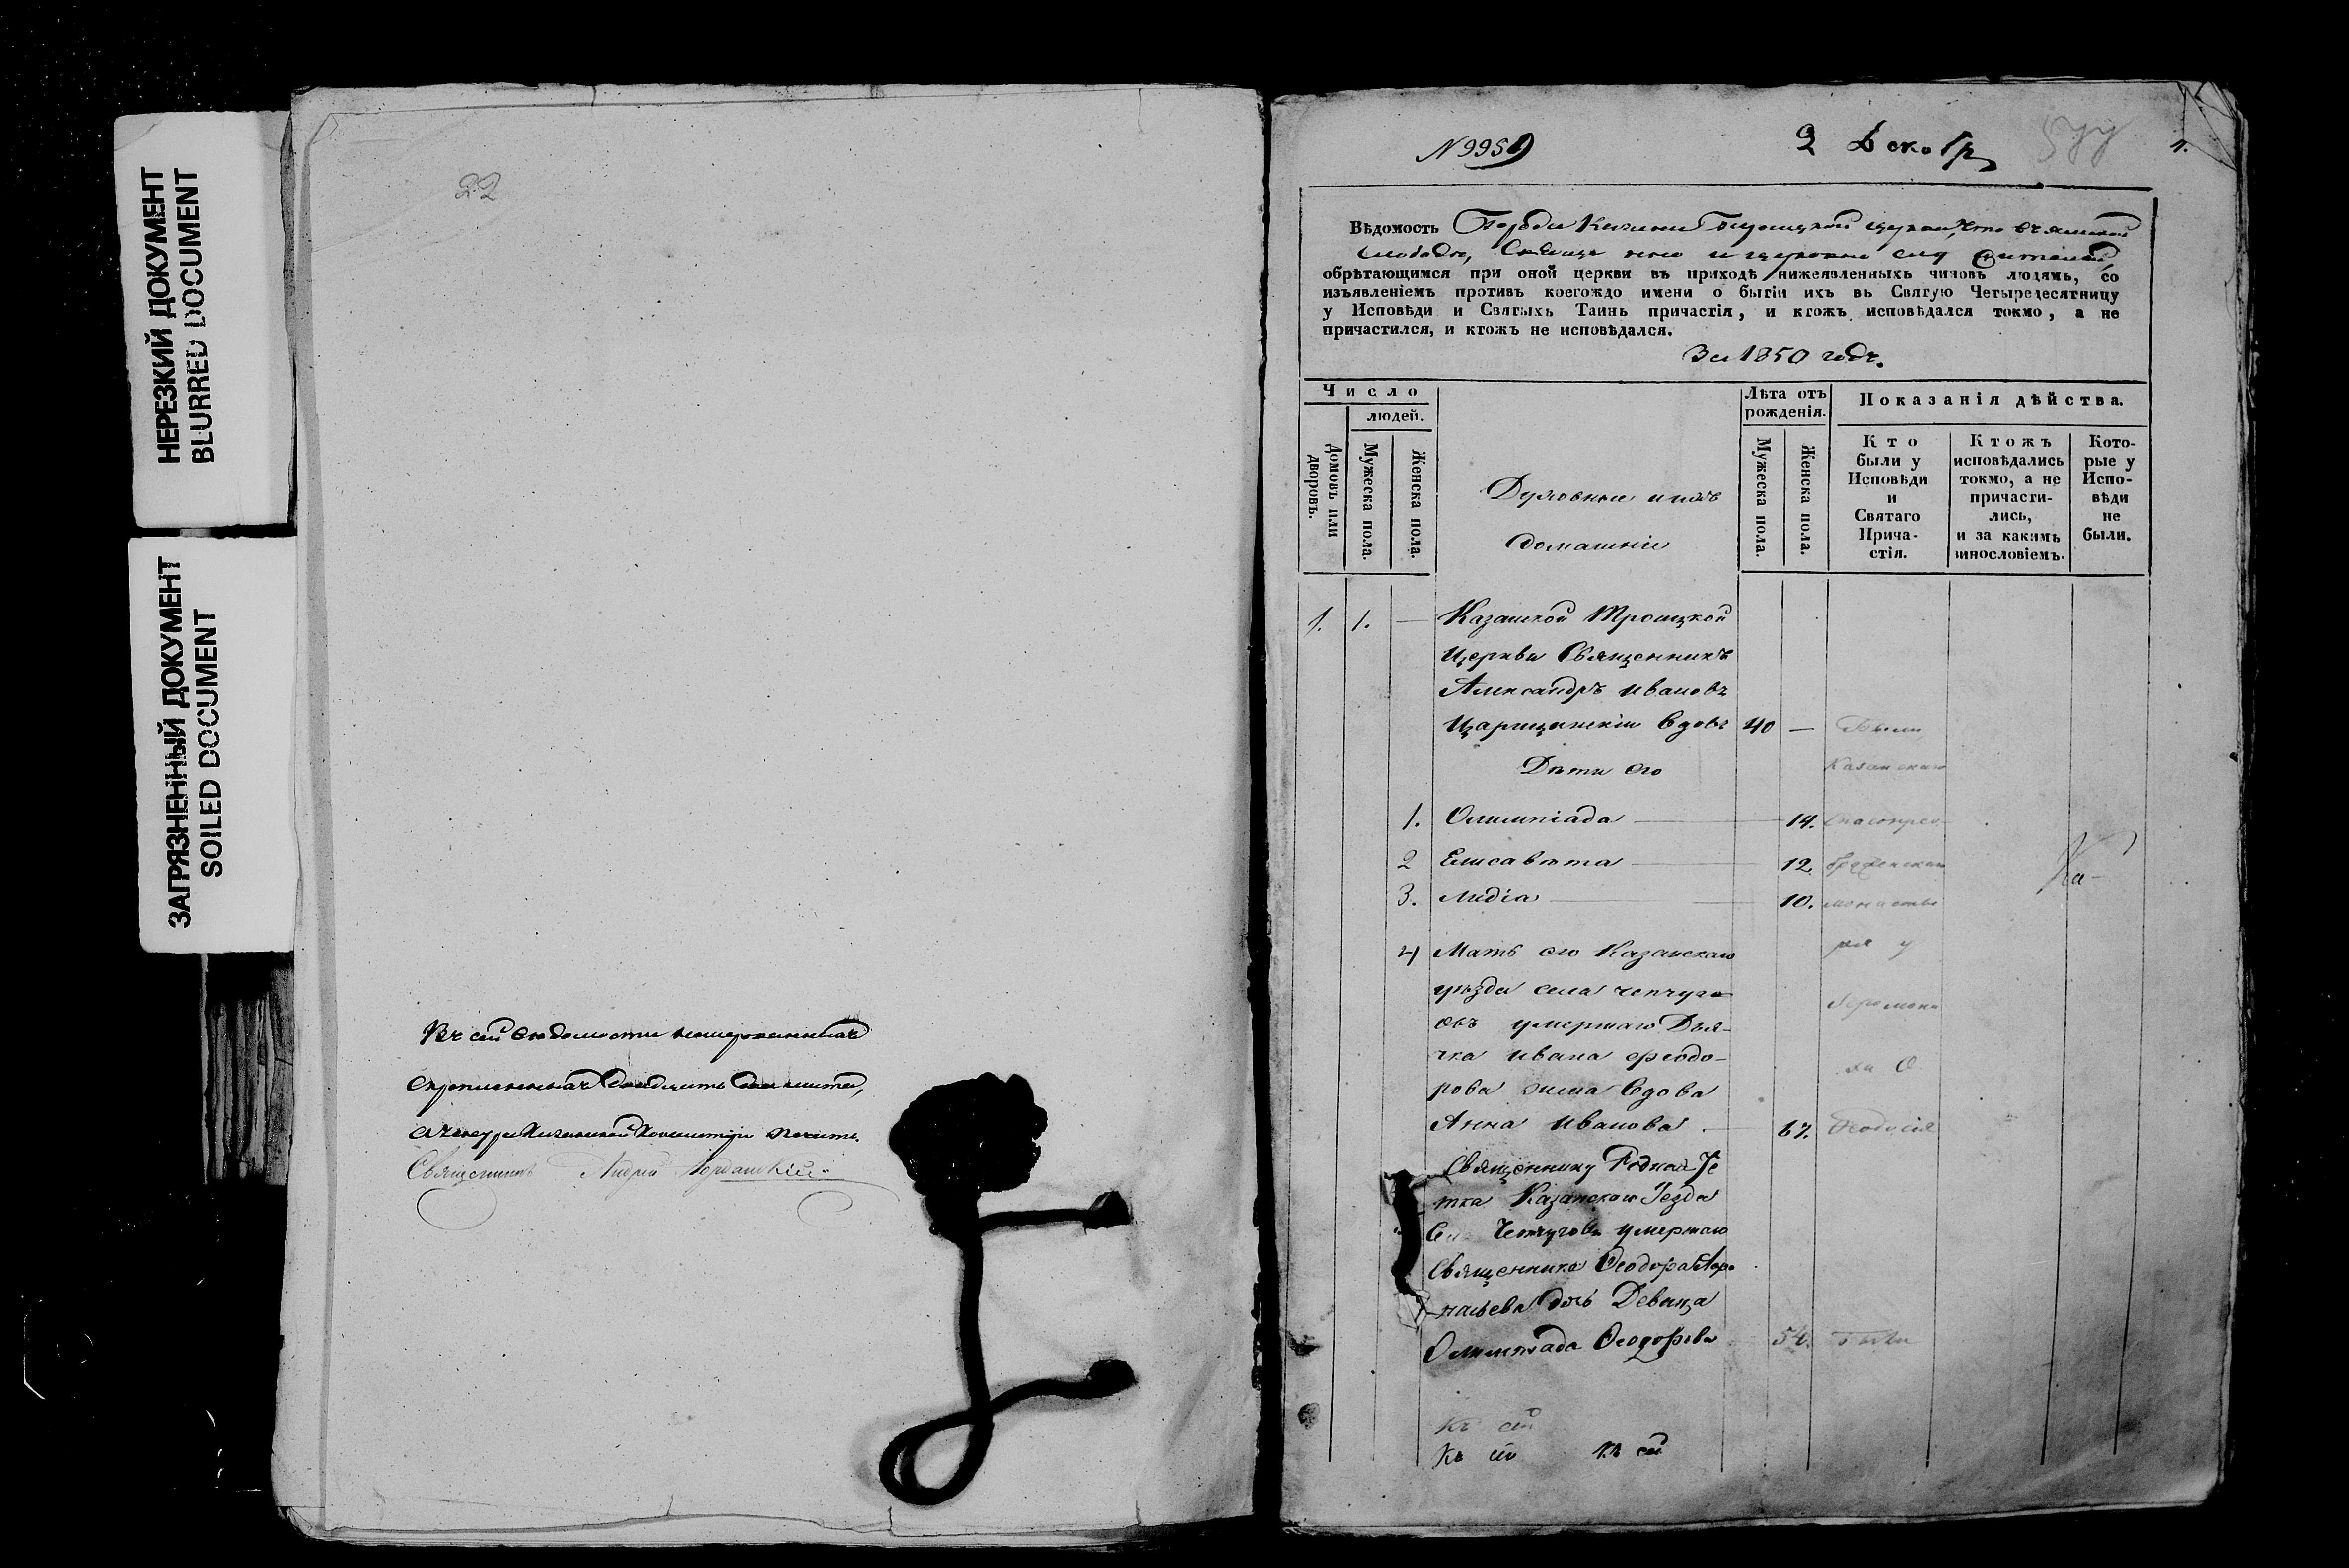 НЕРЕЗКИЙ ДОКУМЕНТ
BLURRED DOCUMENT
ЗАГРЯЗНЕННЫЙ ДОКУМЕНТ
SOILED DOCUMENT
22
Въ сей ведомости нумерованныхъ
скрепленныхъ двадцать два листа,
Священникъ Андрей
N 9959
2 Декабр
1.
Вѣдомость Города Казани Троицкой церкви, что въ ямской
слободѣ,
обрѣтающимся при оной церкви въ приходѣ нижеявленныхъ чиновъ людямъ, со
изъявленіемъ противъ коегождо имени о бытіи ихъ въ Святую Четыредесятницу
у Исповѣди и Святыхъ Таинъ причастія, и ктожъ исповѣдался токмо, а не
причастился, и ктожъ не исповѣдался.
За 1850 годъ.
Число
людей.
Домовъ или дворовъ.
Мужеска пола.
Женска пола.
Духовные и ихъ
домашніе
Лѣта отъ
рожденія.
Мужеска пола.
Женска пола.
Показанія дѣйства.
Кто
были у
Исповѣди
и
Святаго
Прича-
стія.
Ктожъ
исповѣдались
токмо, а не
причасти-
лись,
и за какимъ
винословіемъ.
Кото-
рые у
Испо-
вѣди
не
были.
1. 1. — Казанской Троицкой
Церкви Священникъ
Александръ Ивановъ
Царицынскій вдовъ 40 — Были
Дѣти его Казанскаго
1. Олимпіада 14. Спасопрео-
2 Елисавѣта 12. браженскаго
3. Лидія 10. монасты
4 Мать его Казанскаго ря у
уѣзда села Чепчуго
въ умершаго Дья- Іеромона
чка Ивана Ѳеодо- ха Ѳ
рова жена вдова
Анна Иванова 67. Ѳеодосія
Священнику Родная Те
тка Казанскаго Уезда
Чепчугова умершаго
Священника Ѳеодора
дочь Девица
Олимпіада Ѳеодорова 54. Были
Къ сей
Къ сей Къ сей